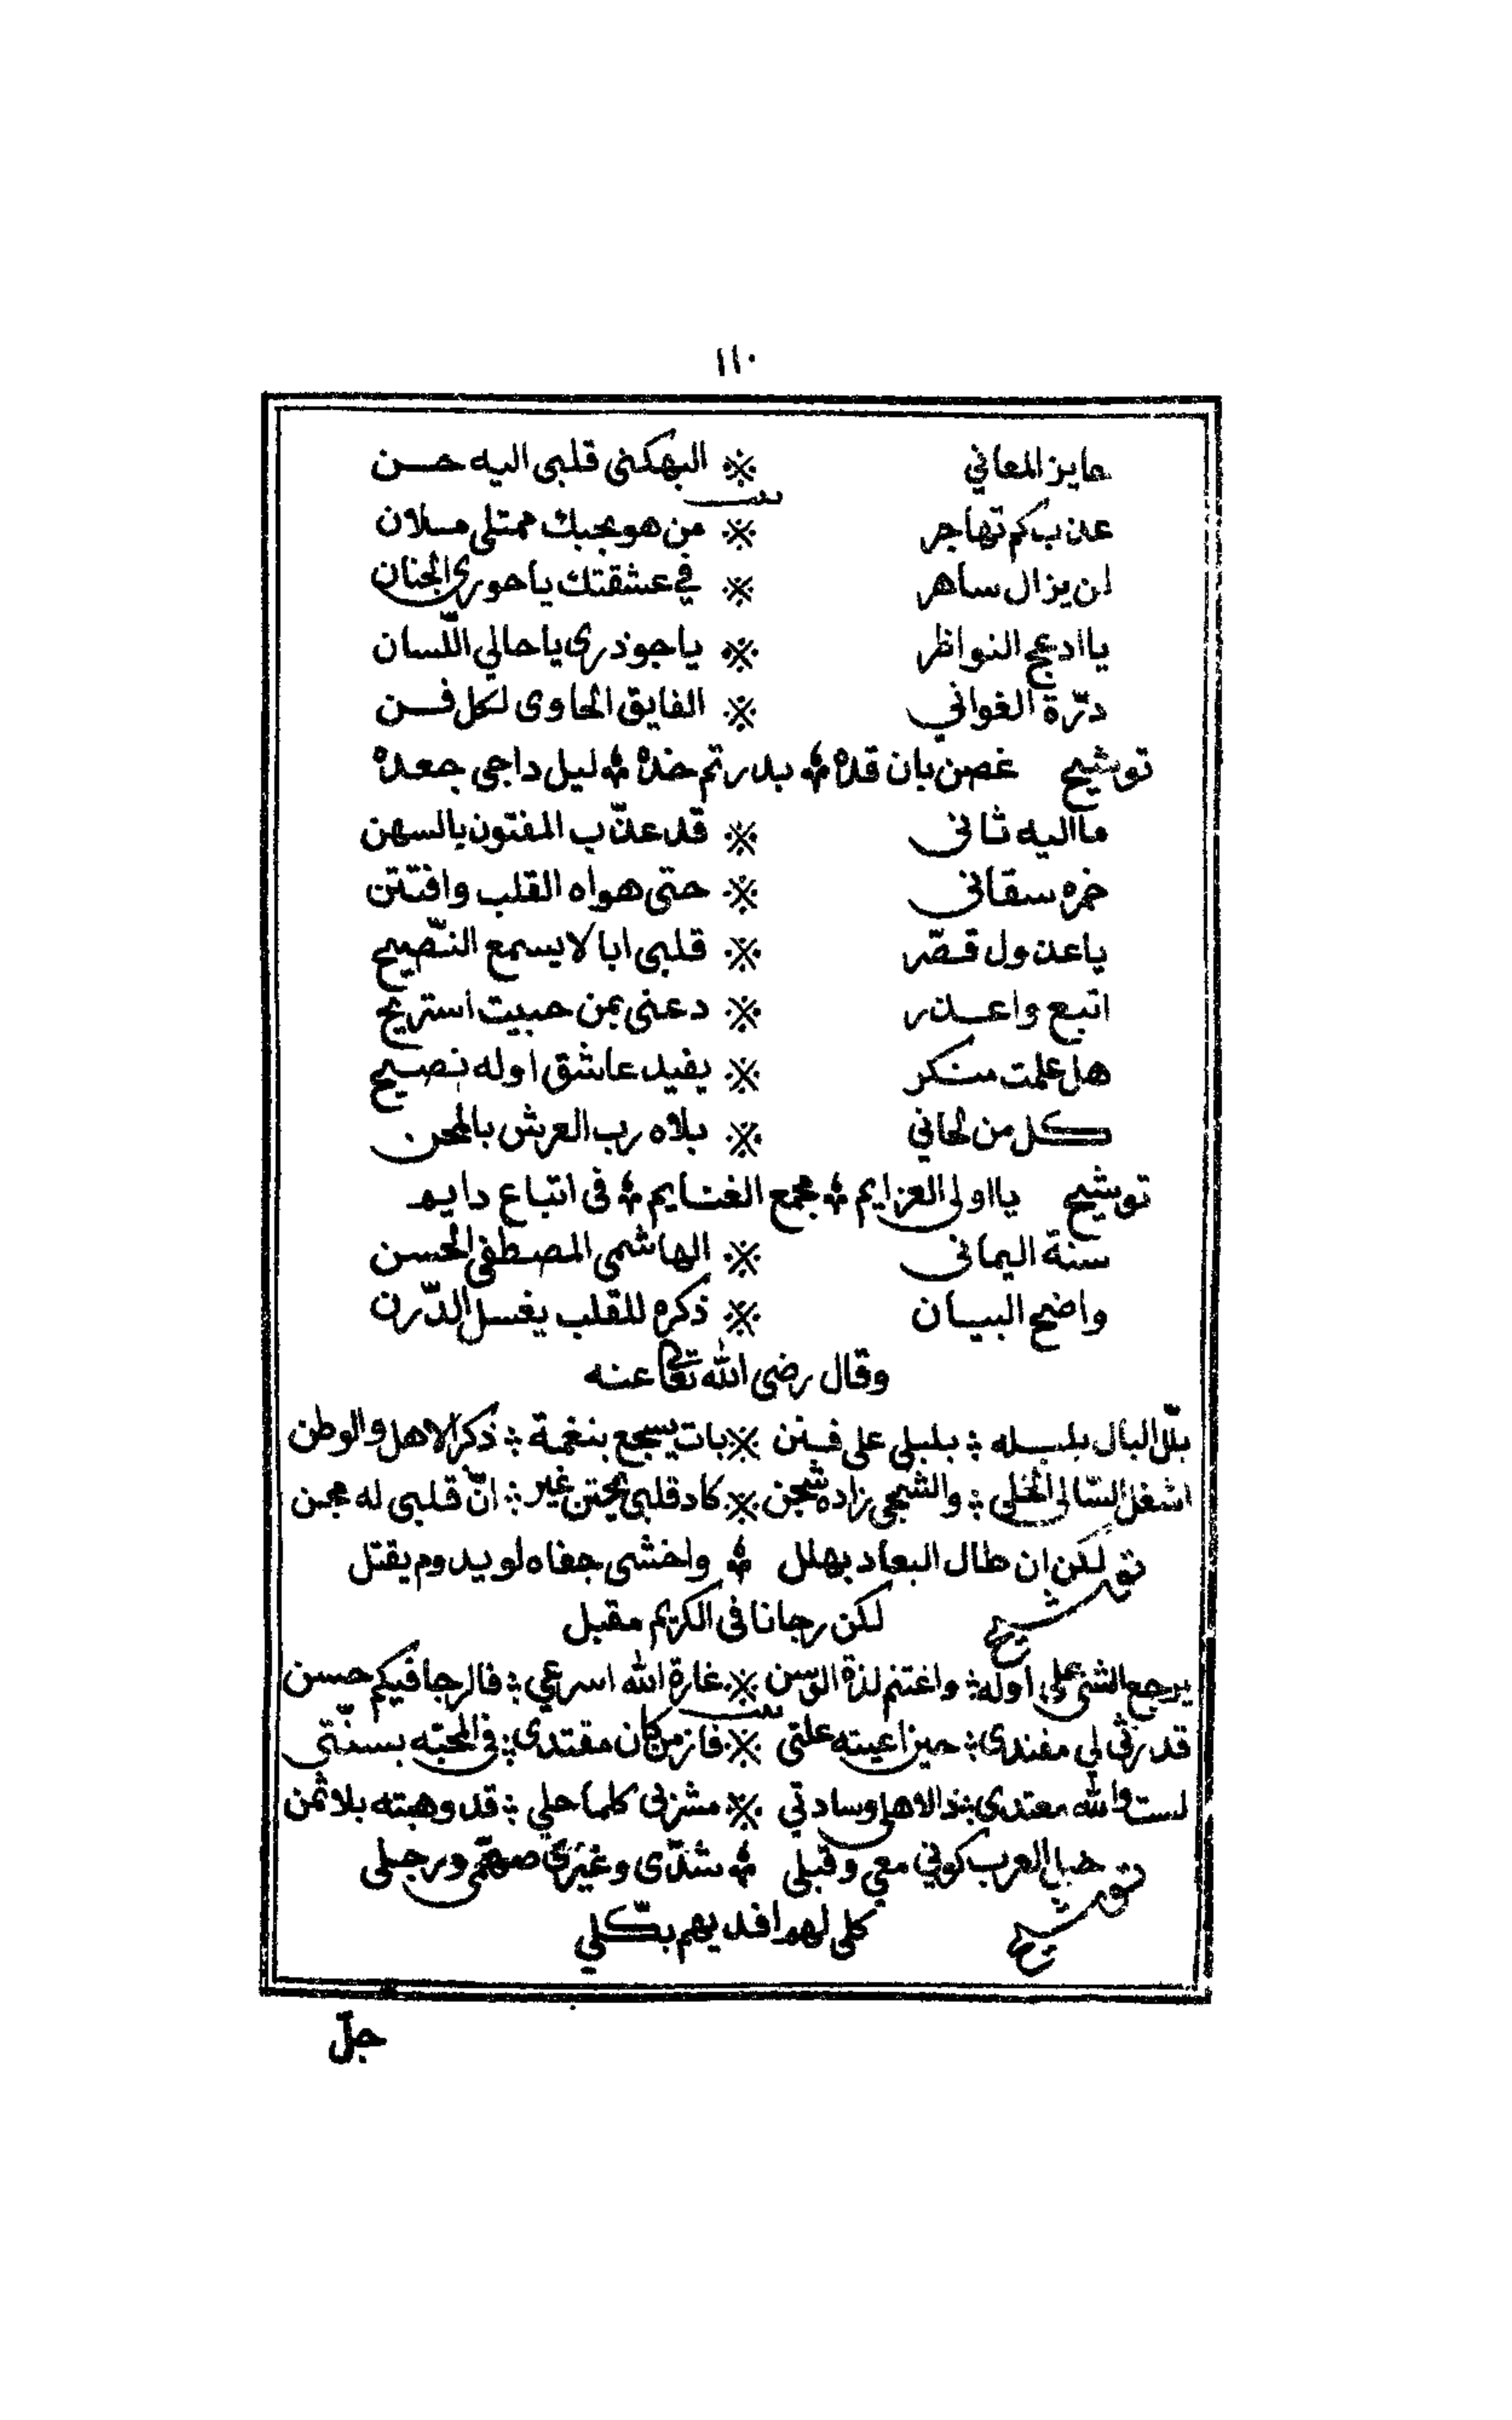 ١١٠
حايز المعاني ※ البهكني قلبى اليه حن
بيت
عذب كم تهاجر ※ من هو بحبك ممتلى ملان
لن يزال ساهر ※ في عشقتك يا حورى الجنان
يا ادعج النواظر ※ يا جوذرى يا حالي اللّسان
درّة الغواني ※ الفايق الحاوى لكل فن
توشيح غصن بان قده ؞ بدر تم خده ؞ ليل داجى جعده
ما اليه ثانى ※ قد عذّب المفتون بالسهن
خمره سقانى ※ حتى هواه القلب وافتتن
يا عذول قصّر ※ قلبى ابا لا يسمع النّصيح
اتبع واعذر ※ دعنى بمن حبيت استريح
هل علمت منكر ※ يفيد عاشق اوله نصيح
كل من لحاني ※ بلاه رب العرش بالمحن
توشيح يا اولى العزايم ؞ مجمع الغنايم ؞ فى اتباع دايم
سنة اليمانى ※ الهاشمى المصطفى الحسن
واضح البيان ※ ذكره للقلب يغسل الدّرن
وقال رضى الله تعالى عنه
بلّل البال بلبله ؞ بلبلى على فنن ※ بات يسجع بنغمة ؞ ذكر الاهل والوطن
اشغل السّالى الخلى ؞ والشجى زاده شجن ※ كاد قلبى يجتن غير ؞ انّ قلبى له مجن
توشيح لكن ان طال البعاد بهلل ؞ واخشى جفاه لو يدوم يقتل
لكن رجانا فى الكريم مقبل
يرجع الشى على اوله ؞ واغتنم لذة الوسن ※ غارة الله اسرعي ؞ فالرجا فيكم حسن
بيت
قد رثى لي مفندى ؞ حين اعيته علتى ※ فاز من كان مقتدى ؞ فى المحبّه بسنّتى
لست والله معتدى ؞ بذا لاهلى وسادتي ※ مشربى كلما حلي ؞ قد وهبته بلا ثمن
توشيح حبل العرب كوني معي وقبلى ؞ شدّى وغيرى صهّمى ورجلى
كلى لهم افديهم بكلّي
جلّ